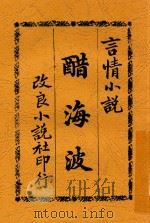 言情小說
醋海波
改良小說社印行